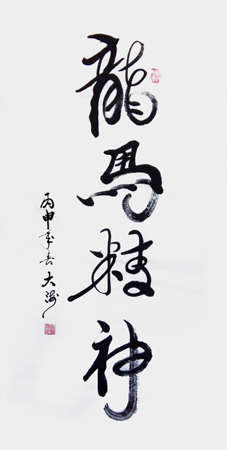 龍馬精神
丙申年春 大海